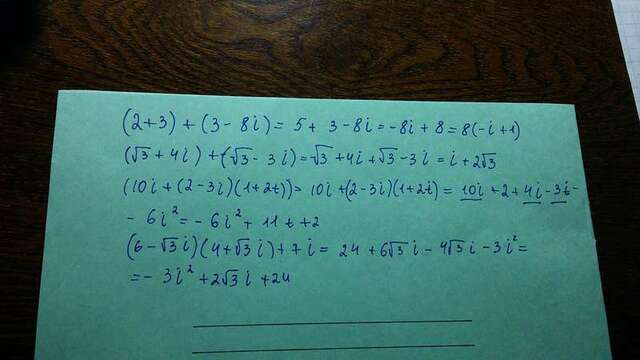 (2+3)+(3-8i)=5+3-8i=-8i+8=8(-i+1)
(√3+4i)+(√3-3i)=√3+4i+√3-3i=i+2√3
(10i+(2-3i)(1+2i))=10i+(2-3i)(1+2i)=10i+2+4i-3i-
-6i²=-6i²+11i+2
(6-√3i)(4+√3i)+7i=24+6√3i-4√3i-3i²=
=-3i²+2√3i+24